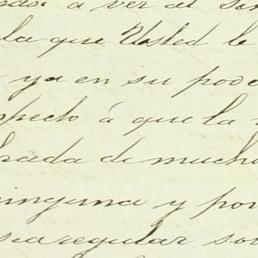 a ver al
la que Usted le
ya en su pode
specto á que la
rada de mucho
ninguna y por
sea regular so